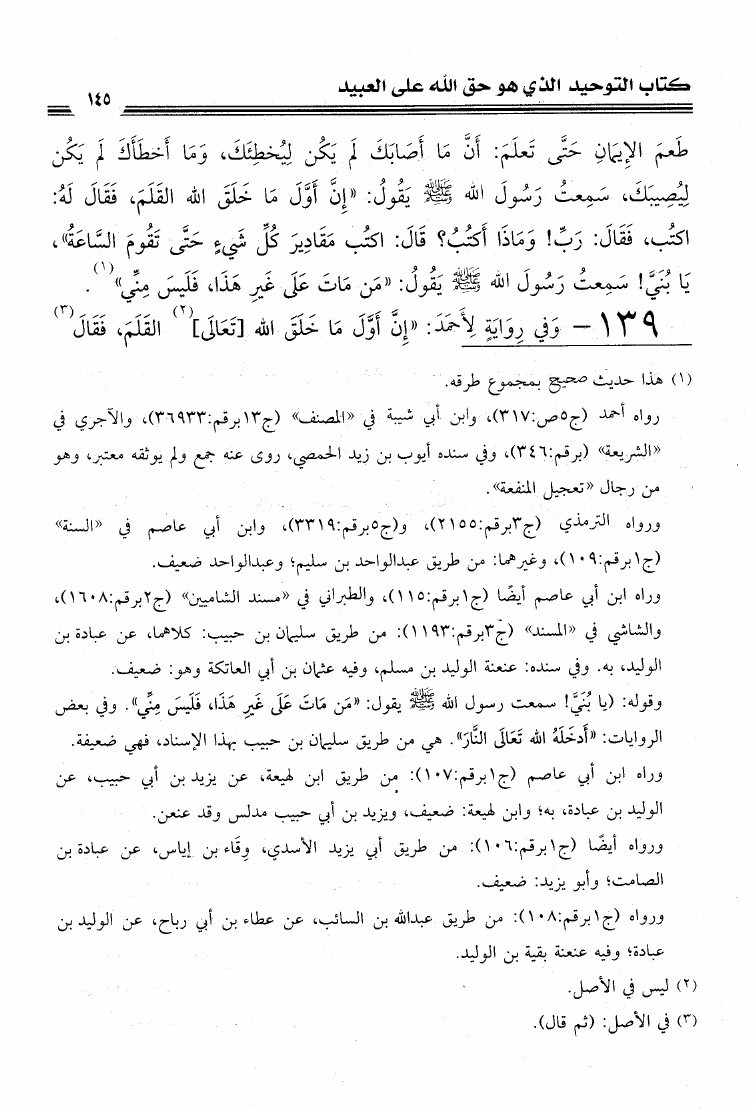 كتاب التوحيد الذي هو حق الله على العبيد
١٤٥
طَعمَ الإِيمَانِ حَتَّى تَعلَمَ: أَنَّ مَا أَصَابَكَ لَم يَكُن لِيُخطِئَكَ، وَمَا أَخطَأَكَ لَم يَكُن
لِيُصِيبَكَ، سَمِعتُ رَسُولَ الله ﷺ يَقُولُ: «إِنَّ أَوَّلَ مَا خَلَقَ الله القَلَمَ، فَقَالَ لَهُ:
اكتُب، فَقَالَ: رَبِّ! وَمَاذَا أَكتُبُ؟ قَالَ: اكتُب مَقَادِيرَ كُلِّ شَيءٍ حَتَّى تَقُومَ السَّاعَةُ»،
يَا بُنَيَّ! سَمِعتُ رَسُولَ الله ﷺ يَقُولُ: «مَن مَاتَ عَلَى غَيرِ هَذَا، فَلَيسَ مِنِّي»(١).
١٣٩ – وَفي رِوَايَةٍ لِأَحمَدَ: «إِنَّ أَوَّلَ مَا خَلَقَ الله [تَعَالَى](٢) القَلَمَ، فَقَالَ(٣)
(١) هذا حديث صحيح بمجموع طرقه.
رواه أحمد (ج٥ص:٣١٧)، وابن أبي شيبة في «المصنف» (ج١٣برقم:٣٦٩٣٣)، والآجري في
«الشريعة» (برقم:٣٤٦)، وفي سنده أيوب بن زيد الحمصي، روى عنه جمع ولم يوثقه معتبر، وهو
من رجال «تعجيل المنفعة».
ورواه الترمذي (ج٣برقم:٢١٥٥)، و(ج٥برقم:٣٣١٩)، وابن أبي عاصم في «السنة»
(ج١برقم:١٠٩)، وغيرهما: من طريق عبدالواحد بن سليم؛ وعبدالواحد ضعيف.
وراه ابن أبي عاصم أيضًا (ج١برقم:١١٥)، والطبراني في «مسند الشاميين» (ج٢برقم:١٦٠٨)،
والشاشي في «المسند» (ج٣برقم:١١٩٣): من طريق سليمان بن حبيب: كلاهما، عن عبادة بن
الوليد، به. وفي سنده: عنعنة الوليد بن مسلم، وفيه عثمان بن أبي العاتكة وهو: ضعيف.
وقوله: (يا بُنَيَّ! سمعت رسول الله ﷺ يقول: «مَن مَاتَ عَلَى غَيرِ هَذَا، فَلَيسَ مِنِّي». وفي بعض
الروايات: «أَدخَلَهُ الله تَعَالَى النَّارَ». هي من طريق سليمان بن حبيب بهذا الإسناد، فهي ضعيفة.
وراه ابن أبي عاصم (ج١برقم:١٠٧): من طريق ابن لهيعة، عن يزيد بن أبي حبيب، عن
الوليد بن عبادة، به؛ وابن لهيعة: ضعيف، ويزيد بن أبي حبيب مدلس وقد عنعن.
ورواه أيضًا (ج١برقم:١٠٦): من طريق أبي يزيد الأسدي، وِقَاء بن إياس، عن عبادة بن
الصامت؛ وأبو يزيد: ضعيف.
ورواه (ج١برقم:١٠٨): من طريق عبدالله بن السائب، عن عطاء بن أبي رباح، عن الوليد بن
عبادة؛ وفيه عنعنة بقية بن الوليد.
(٢) ليس في الأصل.
(٣) في الأصل: (ثم قال).